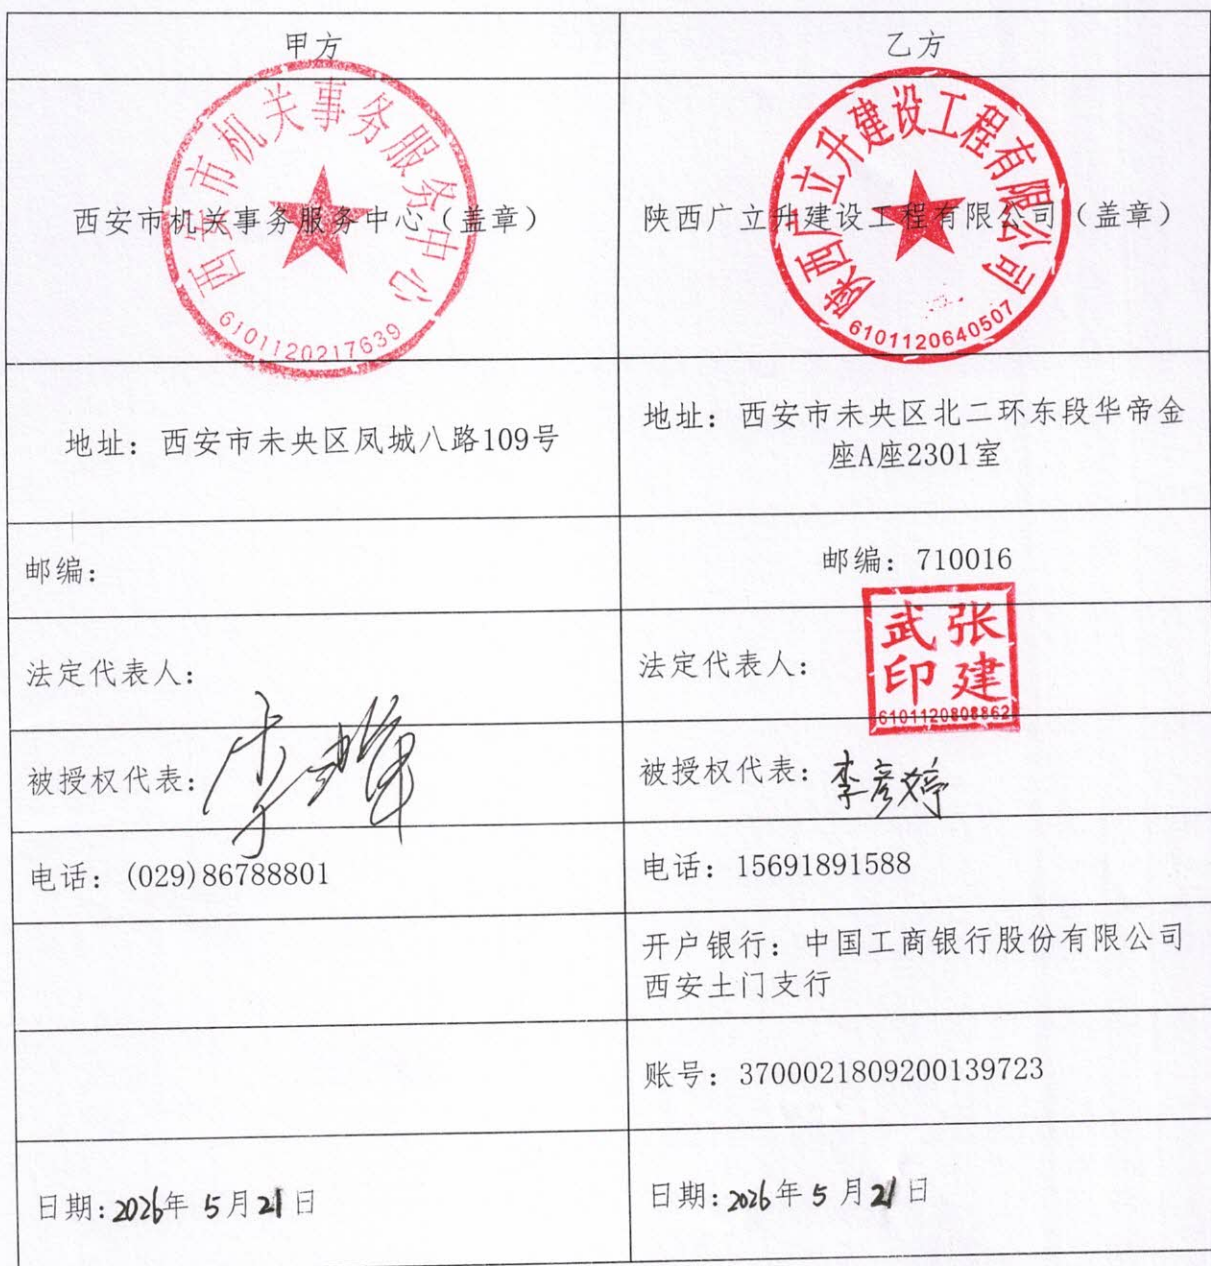 甲方
乙方
西安市机关事务服务中心（盖章）
西安市机关事务服务中心
6101120217639
陕西广立升建设工程有限公司（盖章）
陕西广立升建设工程有限公司
6101120640507
地址：西安市未央区凤城八路109号
地址：西安市未央区北二环东段华帝金
座A座2301室
邮编：
邮编：710016
法定代表人：
法定代表人：
张建
武印
6101120808862
被授权代表：
被授权代表：李彦婷
电话：(029)86788801
电话：15691891588
开户银行：中国工商银行股份有限公司
西安土门支行
账号：3700021809200139723
日期：2026年 5月21日
日期：2026年 5月21日